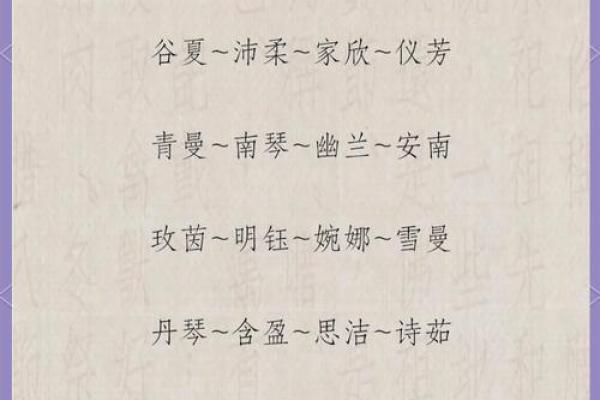 谷夏~沛柔~家欣~仪芳
青曼~南琴~幽兰~安南
玫茵~明钰~婉娜~雪曼
丹琴~含盈~思洁~诗茹